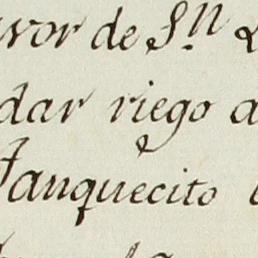 vor de Sn
dar riego a
Tanquecito